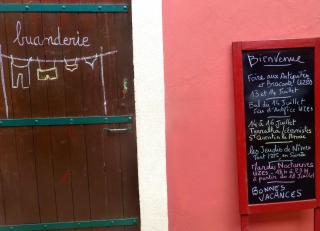 buanderie
Bienvenue
Foire aux Antiquités
et Brocante UZES
13 et 14 Juillet
Bal du 14 Juillet
Feu d'Artifice UZES
14 & 16 Juillet
St Quentin la Poterie
les Jeudis de Nîmes
Tout l'ETE en Soirée
Mardis Nocturnes
UZES
à partir du 18 Juillet
BONNES
VACANCES